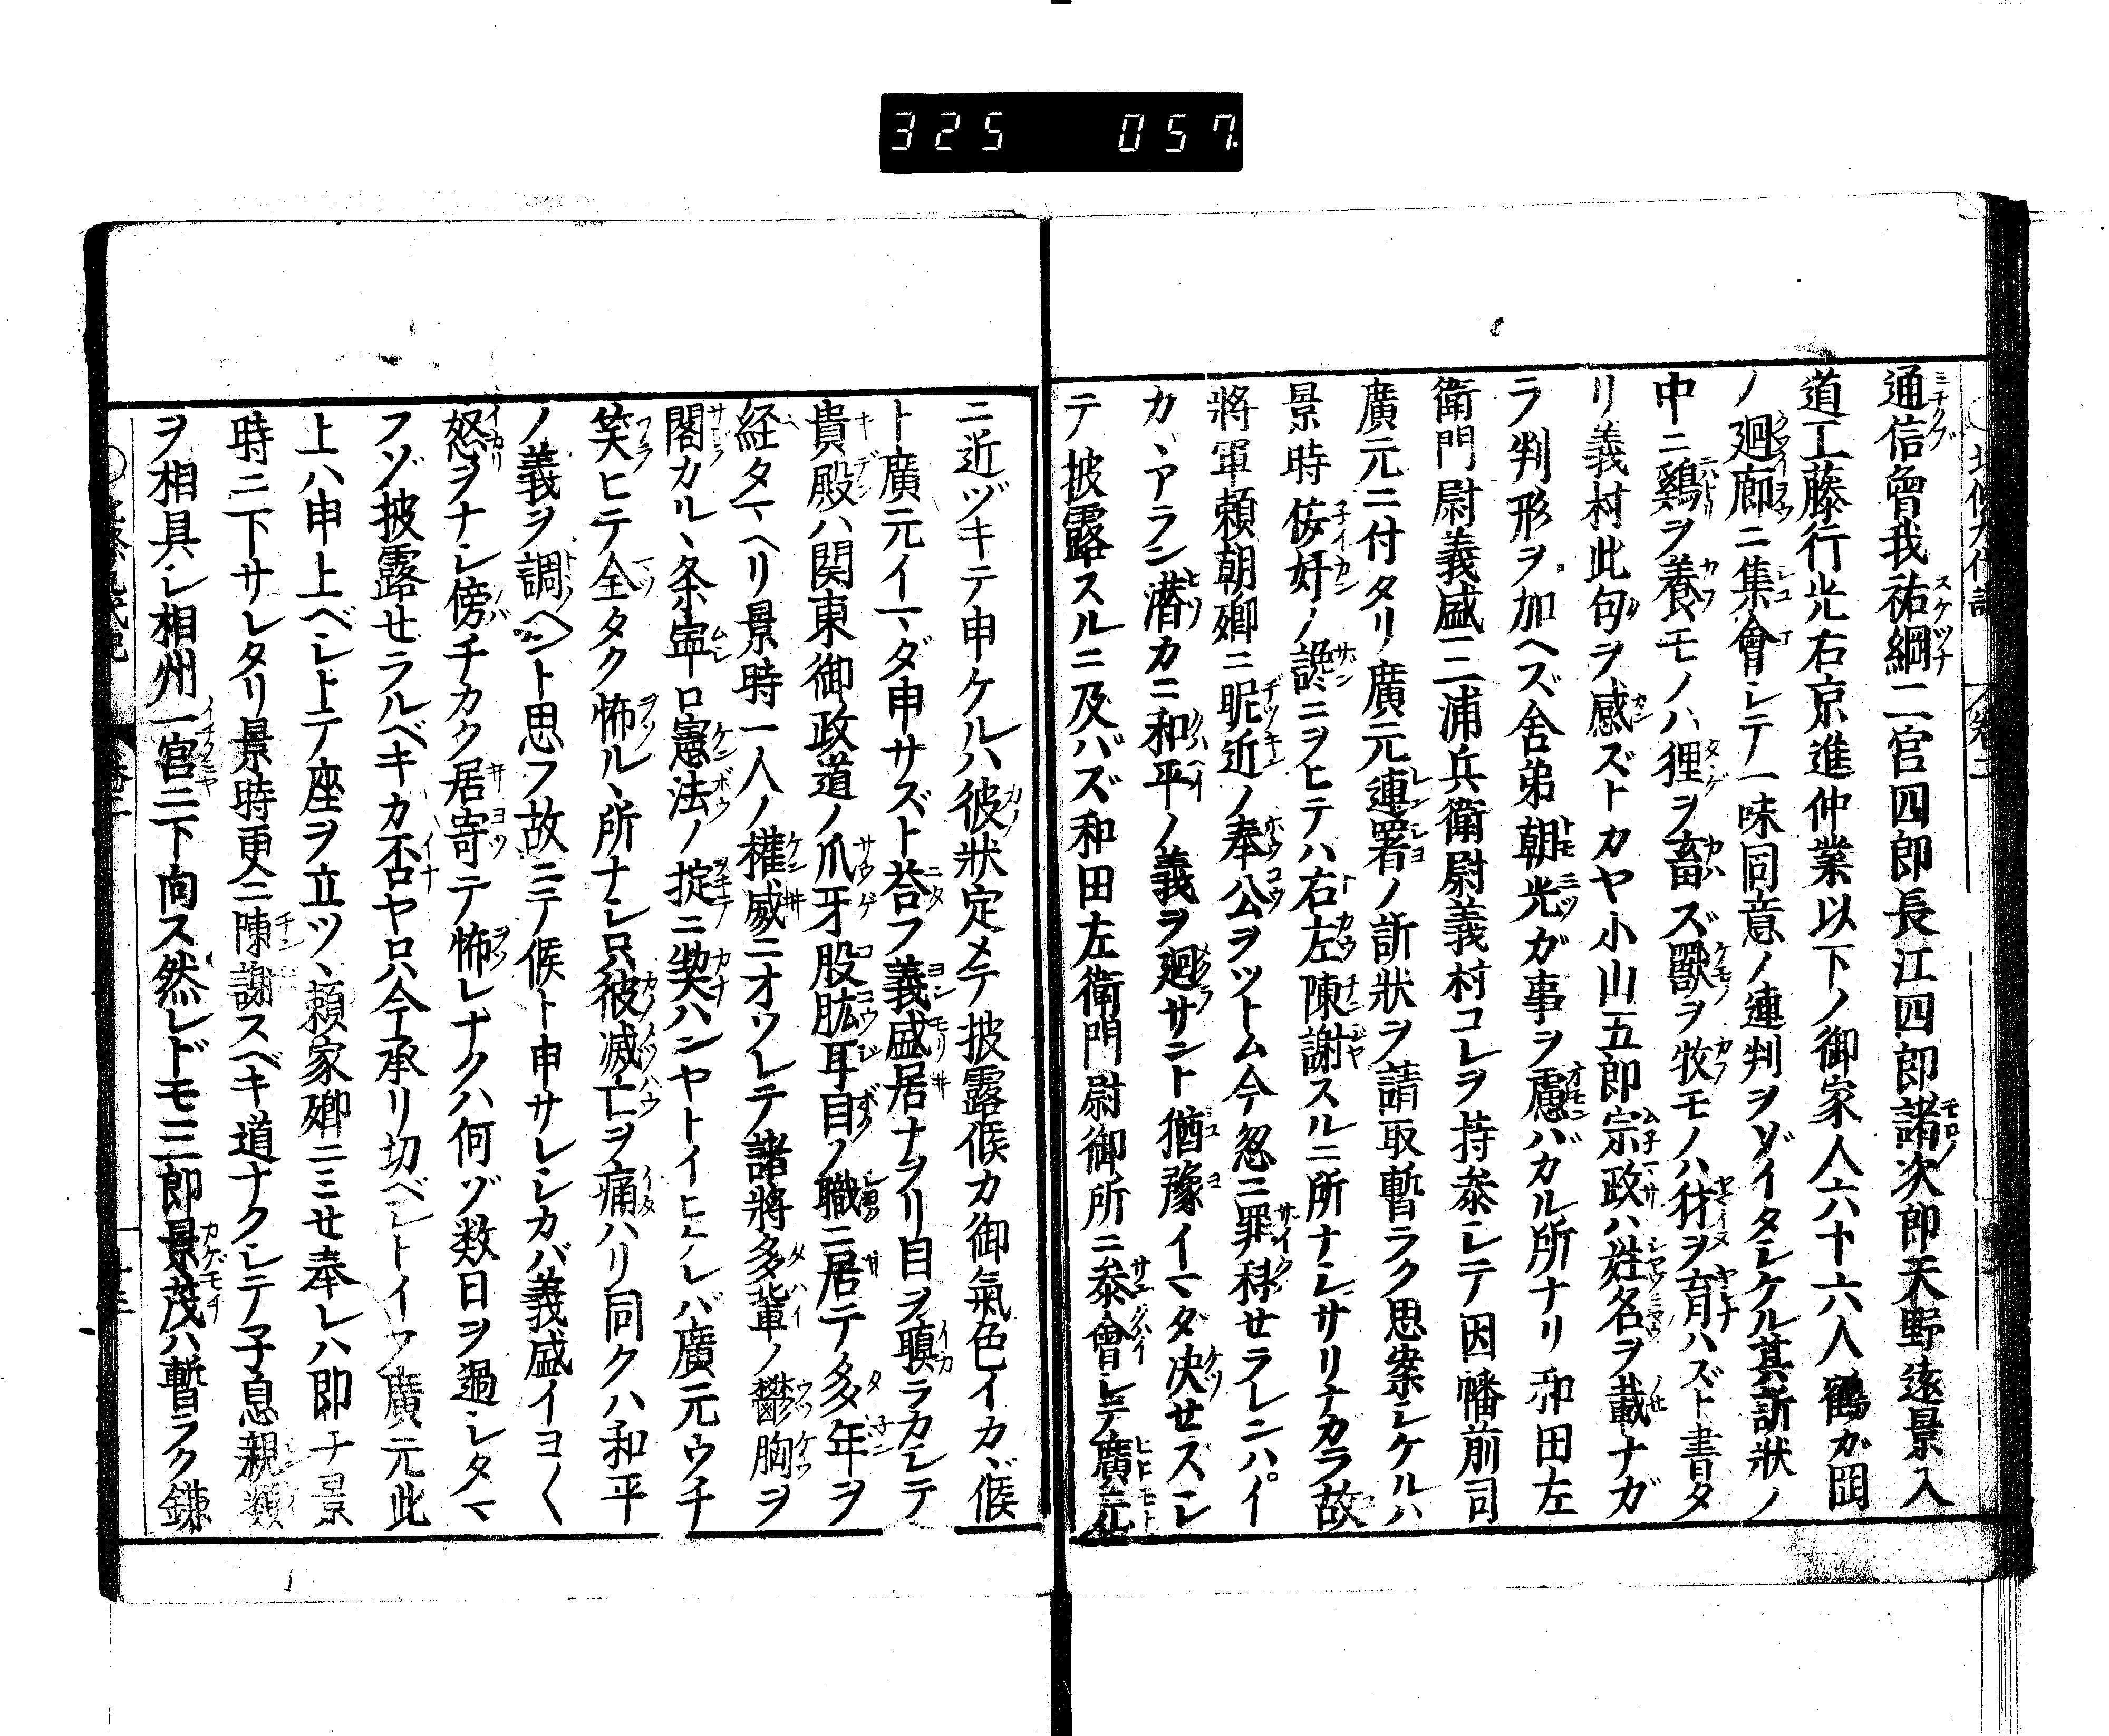 325 057
通信曾我祐綱二宮四郎長江四郎諸次郎天野遠景入
道工藤行光右京進仲業以下ノ御家人六十六人鶴ガ岡
ノ廻廊ニ集會シテ一味同意ノ連判ヲゾイタシケル其訴狀ノ
中ニ鷄ヲ養モノハ狸ヲ畜ズ獸ヲ牧モノハ豺ヲ育ハズト書タ
リ義村此句ヲ感ズトカヤ小山五郎宗政ハ姓名ヲ載ナガ
ラ判形ヲ加ヘズ舎弟朝光ガ事ヲ慮バカル所ナリ和田左
衛門尉義盛三浦兵衛尉義村コレヲ持參シテ因幡前司
廣元ニ付タリ廣元連署ノ訴狀ヲ請取暫ラク思案シケルハ
景時侫奸ノ讒ニヲヒテハ右左陳謝スルニ所ナシサリナカラ故
將軍頼朝卿ニ昵近ノ奉公ヲツトム今忽ニ罪科せラレンハイ
カヽアラン潜カニ和平ノ義ヲ廻サント猶豫イマダ决せスシ
テ披露スルニ及バズ和田左衛門尉御所ニ參會シテ廣元
ニ近ヅキテ申ケルハ彼狀定メテ披露候カ御氣色イカヾ候
ト廣元イマダ申サズト荅フ義盛居ナヲリ目ヲ瞋ラカシテ
貴殿ハ関東御政道ノ爪牙股肱耳目ノ職ニ居テ多年ヲ
経タマヘリ景時一人ノ權威ニオソレテ諸將多輩ノ鬱胸ヲ
閣カルヽ条寧ロ憲法ノ掟ニ契ハンヤトイヒケレバ廣元ウチ
笑ヒテ全タク怖ルヽ所ナシ只彼滅亡ヲ痛ハリ同クハ和平
ノ義ヲ調ヘント思フ故ニテ候ト申サレシカバ義盛イヨ〳〵
怒ヲナシ傍チカク居寄テ怖レナクハ何ゾ数日ヲ過シタマ
フゾ披露せラルベキカ否ヤロハ今承リ切ベシトイフ廣元此
上ハ申上ベシトテ座ヲ立ツヽ頼家卿ニミせ奉レハ即チ景
時ニ下サレタリ景時更ニ陳謝スベキ道ナクシテ子息親類
ヲ相具シ相州一宮ニ下向ス然レドモ三郎景茂ハ暫ラク鎌